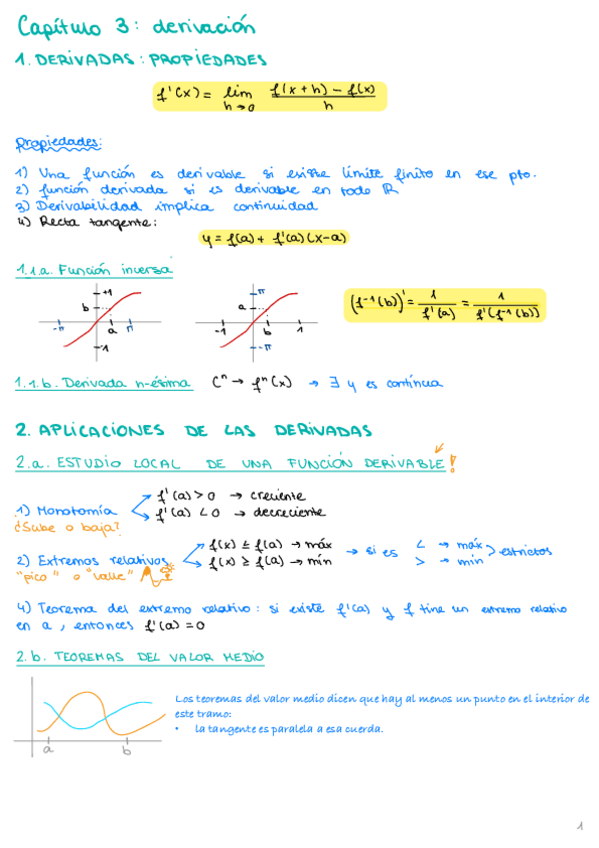 Capítulo 3: derivación
1. DERIVADAS: PROPIEDADES
f'(x) = lim h→0 f(x+h) - f(x) / h
Propiedades:
1) Una función es derivable si existe límite finito en ese pto.
2) función derivada si es derivable en todo ℝ
3) Derivabilidad implica continuidad
4) Recta tangente:
y = f(a) + f'(a)(x-a)
1.1.a. Función inversa
+1 b -π a π -1
π a -1 b 1 -π
(f⁻¹(b))' = 1 / f'(a) = 1 / f'(f⁻¹(b))
1.1.b. Derivada n-ésima Cⁿ → fⁿ(x) → ∃ y es contínua
2. APLICACIONES DE LAS DERIVADAS
2.a. ESTUDIO LOCAL DE UNA FUNCIÓN DERIVABLE!
1) Monotomía
f'(a) > 0 → creciente
f'(a) < 0 → decreciente
¿Sube o baja?
2) Extremos relativos
f(x) ≤ f(a) → máx
f(x) ≥ f(a) → mín
→ si es < → máx
> → min
estrictos
"pico" o "valle"
4) Teorema del extremo relativo: si existe f'(a) y f tine un extremo relativo
en a, entonces f'(a) = 0
2.b. TEOREMAS DEL VALOR MEDIO
a b
Los teoremas del valor medio dicen que hay al menos un punto en el interior de
este tramo:
• la tangente es paralela a esa cuerda.
1